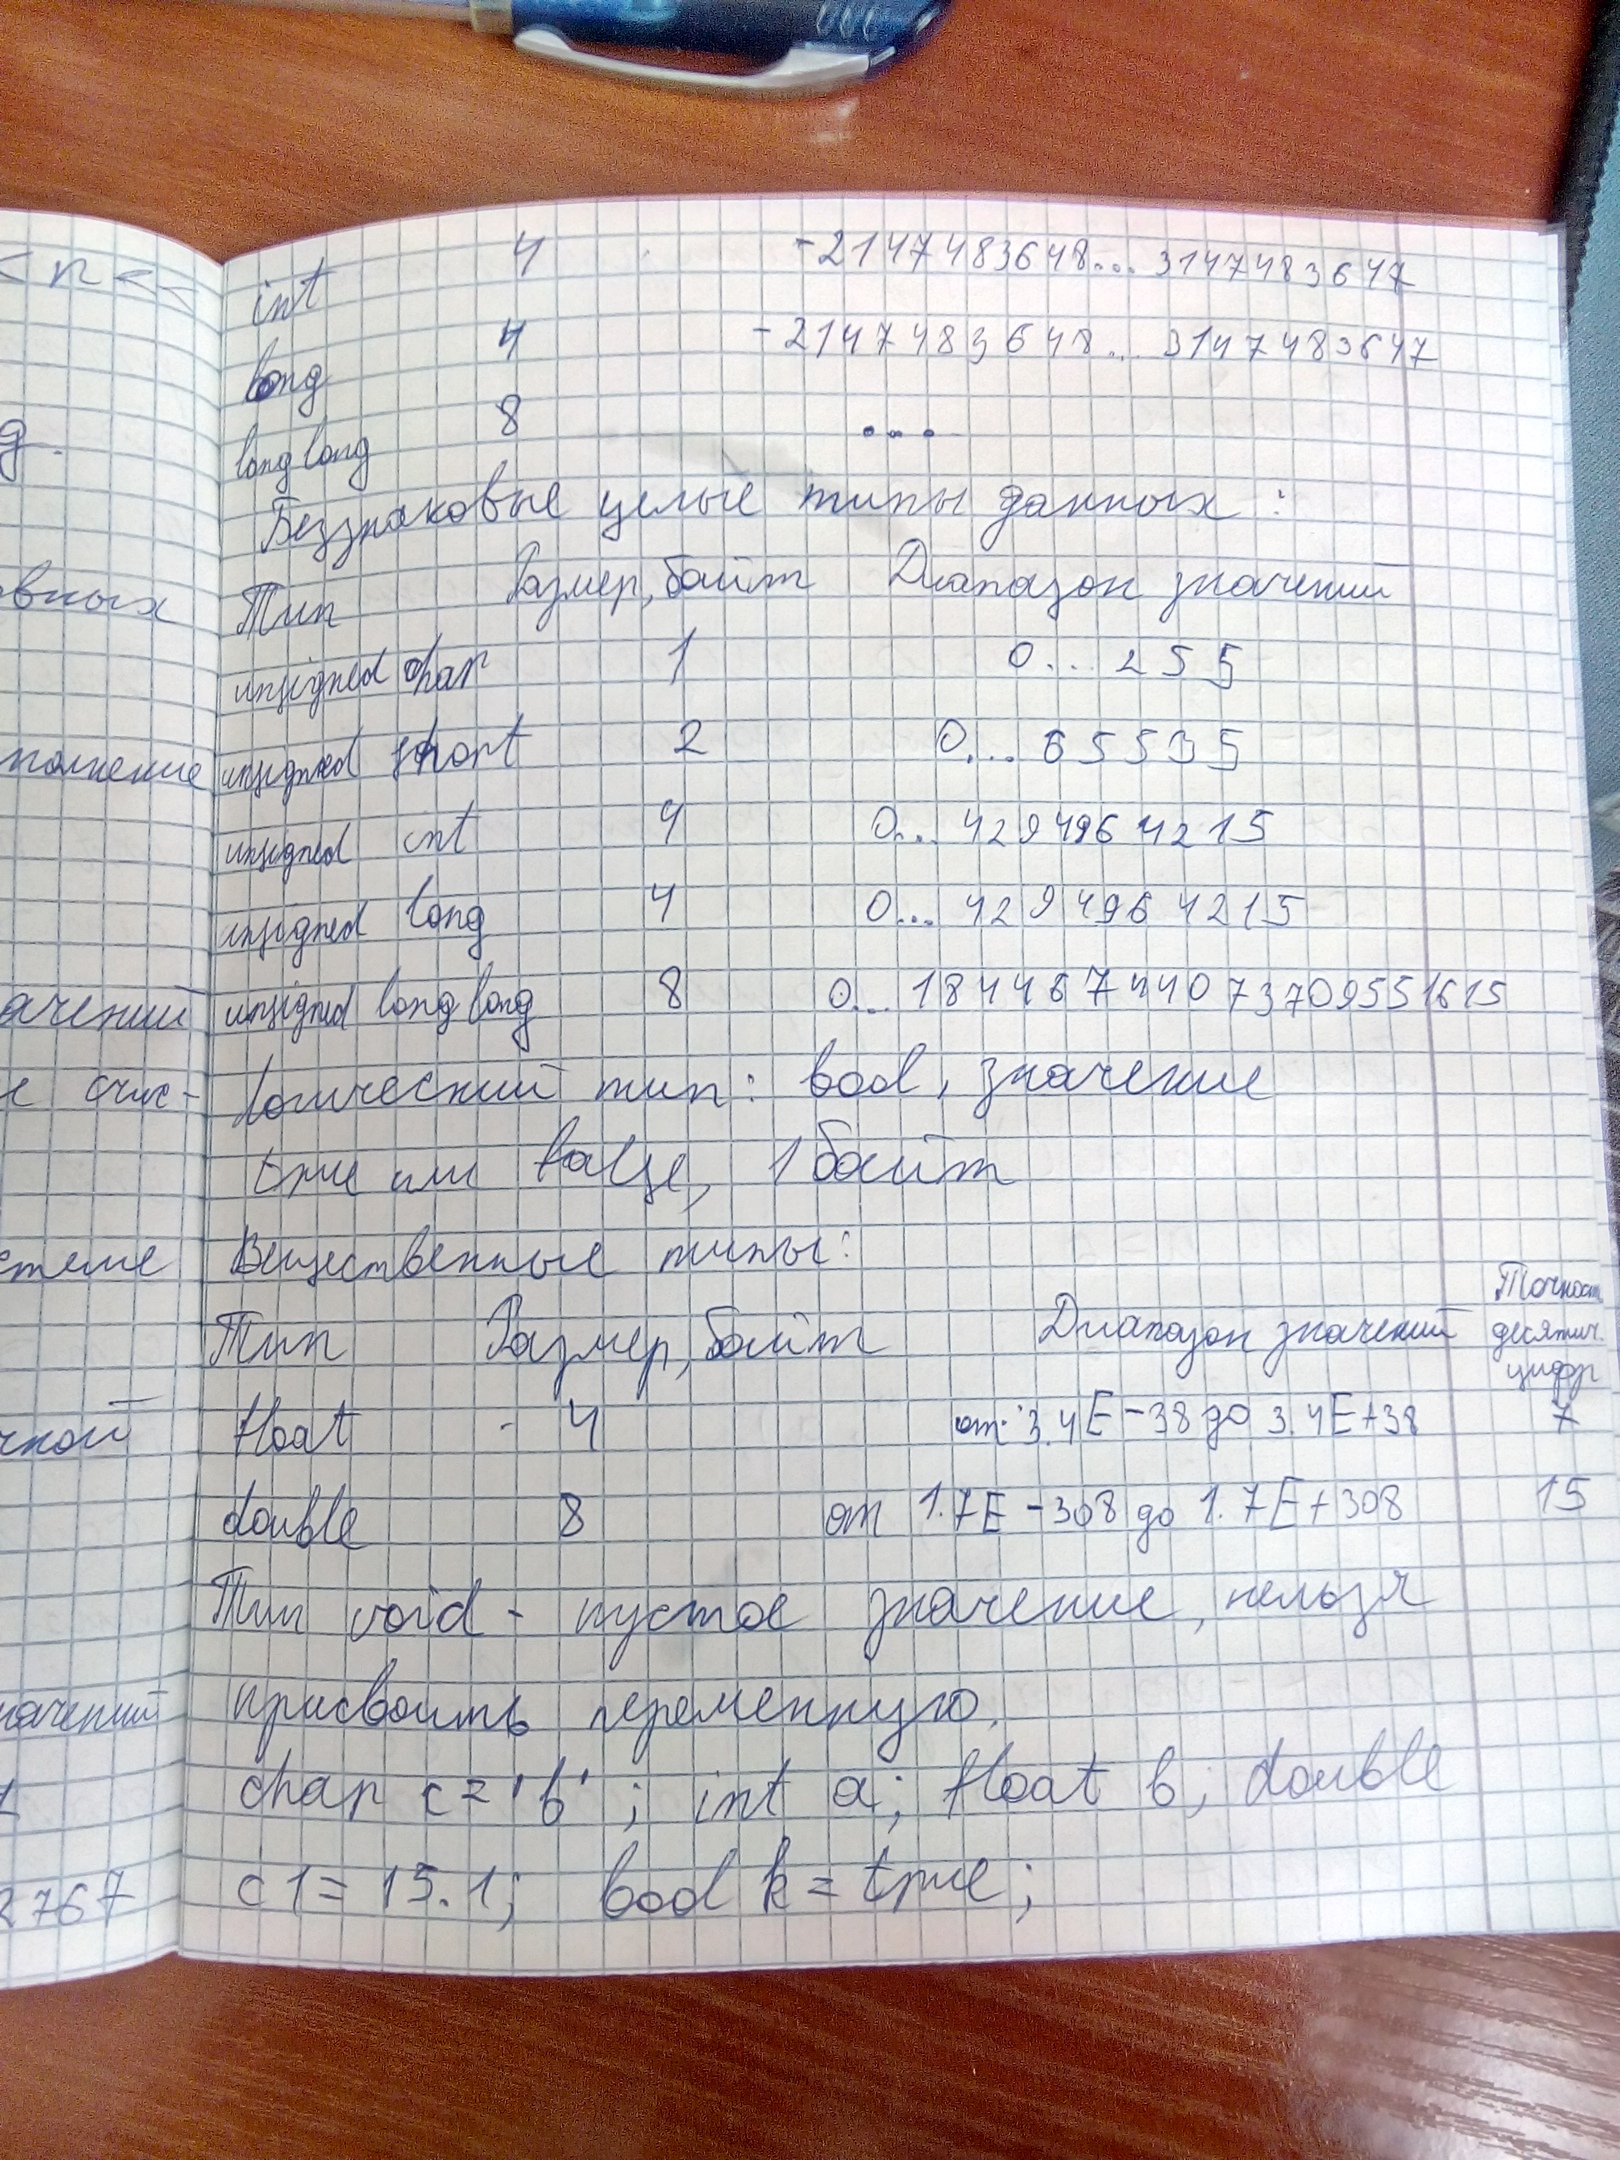 < n <<
int 4 -2147483648... 3147483647
long 4 -2147483648... 3147483647
long long 8 ...
Беззнаковые целые типы данных:
Тип Размер, байт Диапазон значений
unsigned char 1 0... 255
unsigned short 2 0... 65535
unsigned int 4 0... 4294964215
unsigned long 4 0... 4294964215
ачений unsigned long long 8 0... 18446744073709551615
Логический тип: bool, значение
true или false, 1 байт
Вещественные типы:
Тип Размер, байт Диапазон значений Точность десятич. цифр
float 4 от 3.4E-38 до 3.4E+38 7
double 8 от 1.7E-308 до 1.7E+308 15
Тип void - пустое значение, нельзя
присвоить переменную.
char c = 'b'; int a; float b; double
2767 c1 = 15.1; bool k = true;